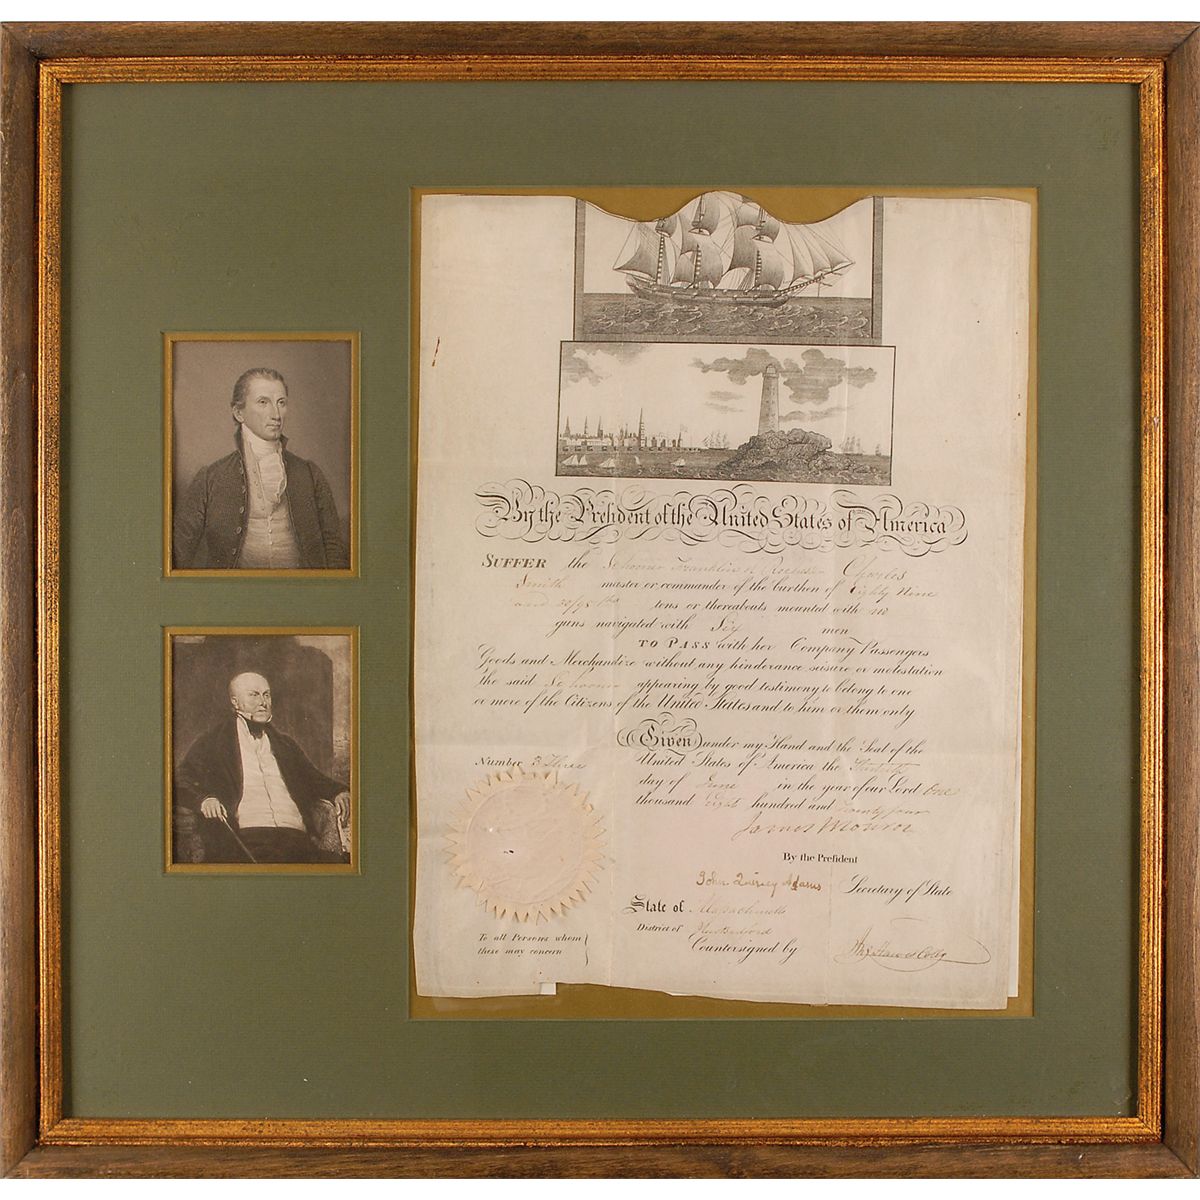 By the President of the United States of America
SUFFER the Schooner Franklin of Charles
Smith master or commander of the burthen of Eighty Nine
and 20/95ths tons or thereabouts mounted with no
guns navigated with Six men
TO PASS with her Company Passengers
Goods and Merchandize without any hinderance seisure or molestation
the said Schooner appearing by good testimony to belong to one
or more of the Citizens of the United States and to him or them only
Given under my Hand and the Seal of the
United States of America the
day of June in the year of our Lord One
thousand Eight hundred and twenty four
Number 3 Three
James Monroe
By the President
John Quincy Adams Secretary of State
State of Massachusetts
District of New Bedford
Countersigned by Hawes Collr
To all Persons whom
these may concern